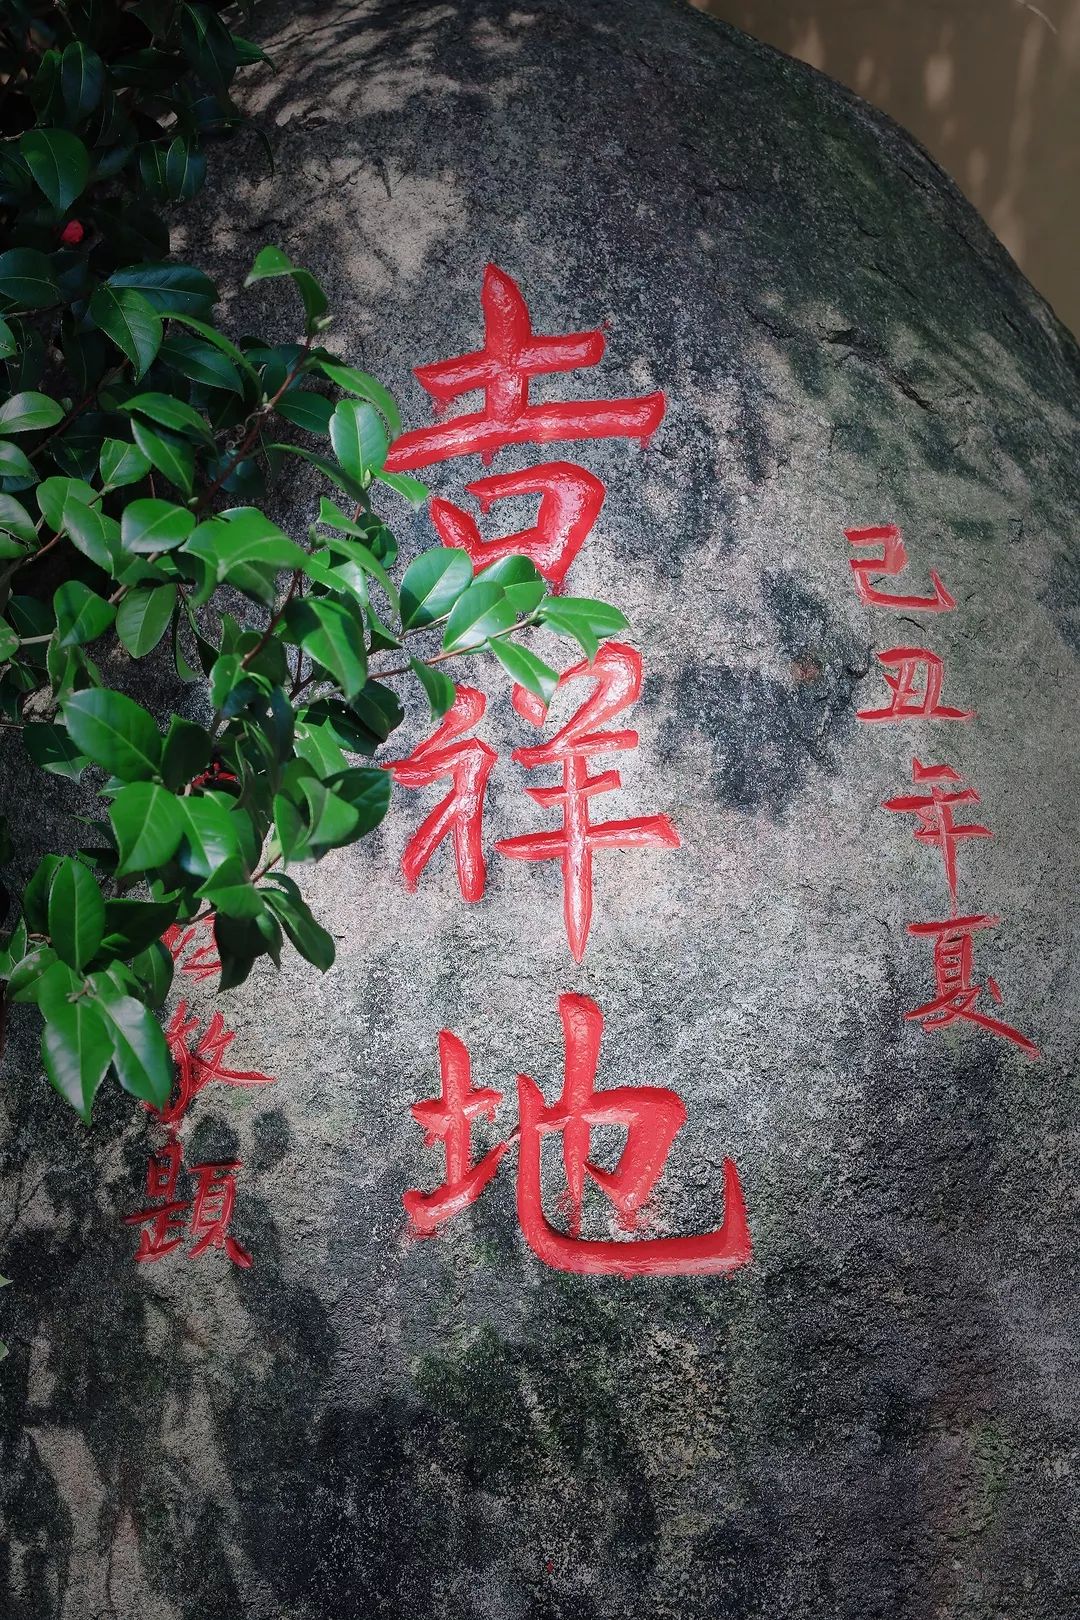 己丑年夏
吉祥地
敬題